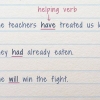 helping verb
teachers have treated us
had already eaten.
will win the fight.